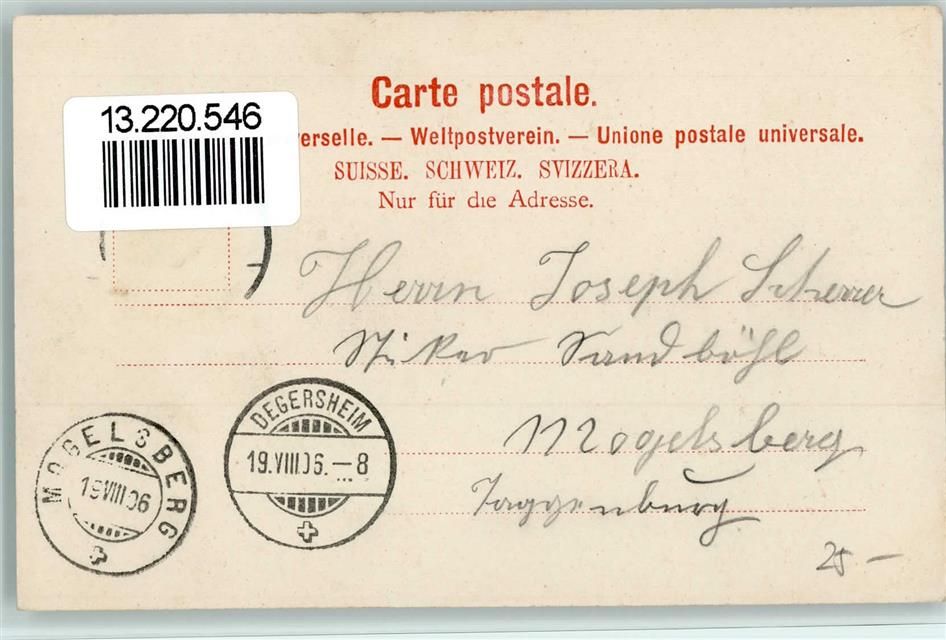 Carte postale.
13.220.546
verselle. — Weltpostverein. — Unione postale universale.
SUISSE. SCHWEIZ. SVIZZERA.
Nur für die Adresse.
Herrn Joseph Scherrer
Stiker Sandbühl
Mogelsberg
Toggenburg
DEGERSHEIM
19.VIII.06.—8
MOGELSBERG
19VIII06
25 —